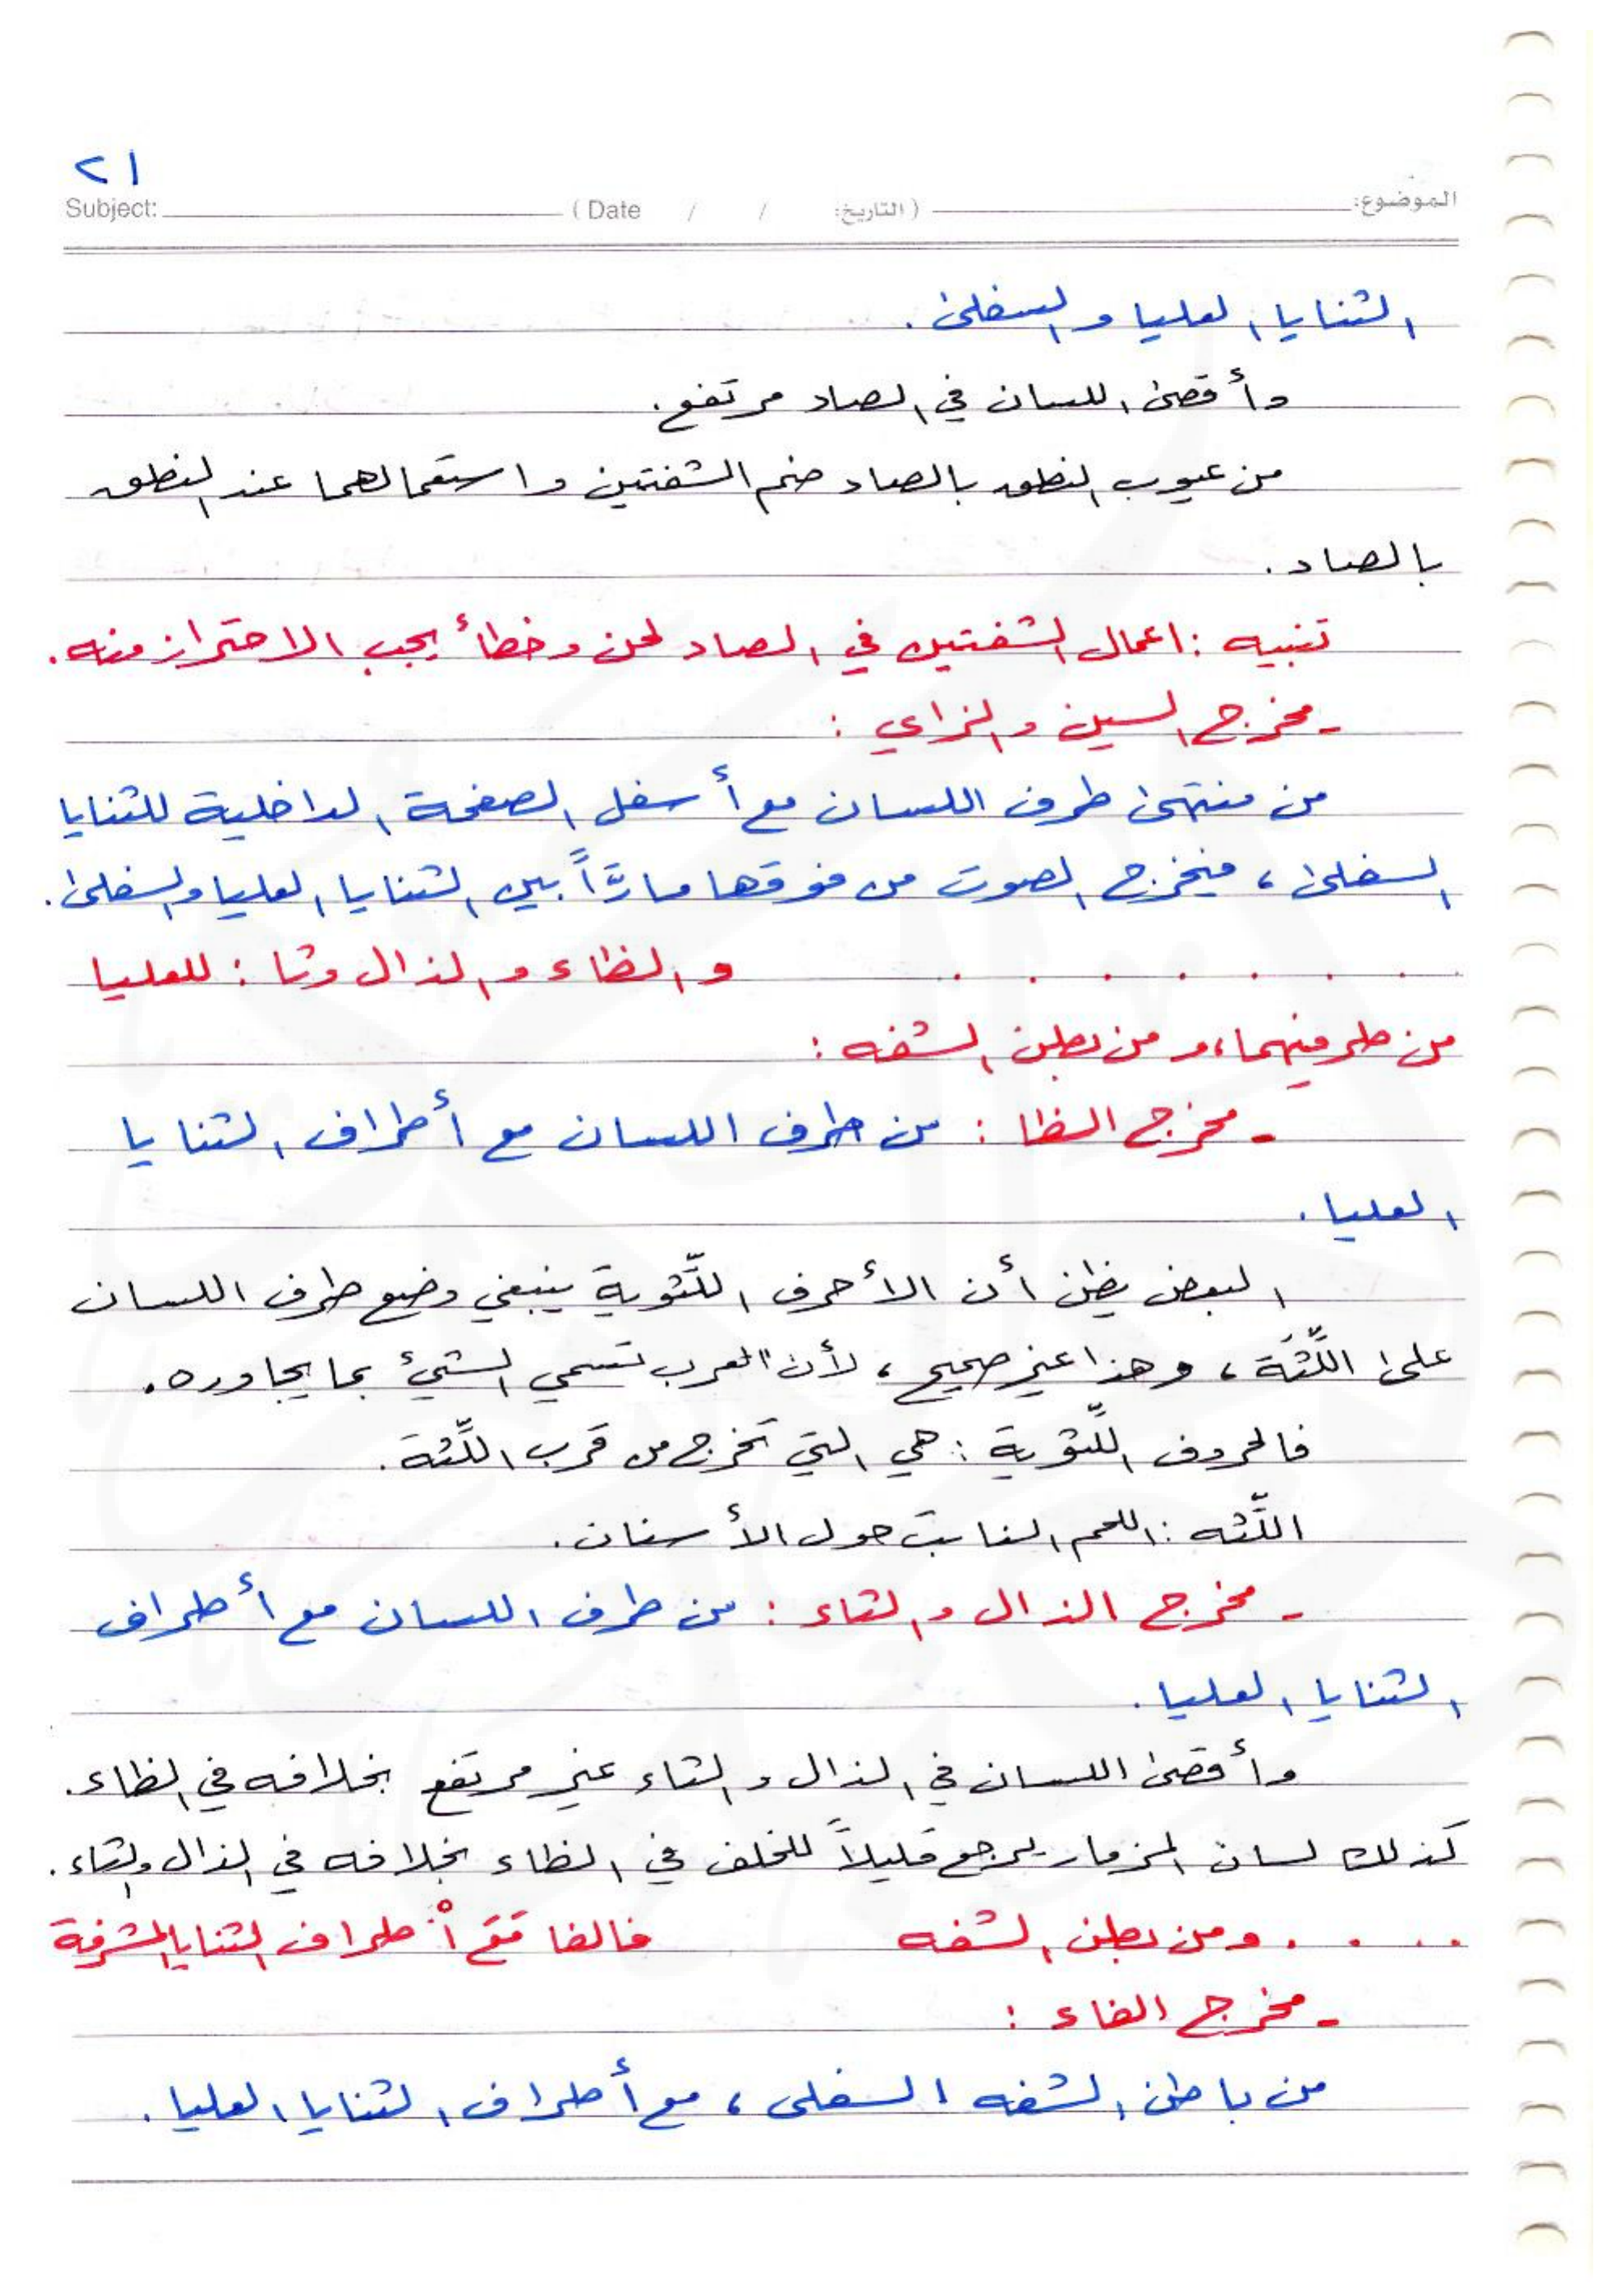 ٢١
الموضوع: (التاريخ: / / Date ) Subject:
الثنايا العليا والسفلى.
وأقصى اللسان في الصاد مرتفع.
من عيوب النطق بالصاد ضم الشفتين واستعمالهما عند النطق
بالصاد.
تنبيه: اعمال الشفتين في الصاد لحن وخطأ يجب الاحتراز منه.
- مخرج السين والزاي :
من منتهى طرف اللسان مع أسفل الصفحة الداخلية للثنايا
السفلى، فيخرج الصوت من فوقها مارًّاً بين الثنايا العليا والسفلى.
. . . . . . . والظاء والذال وثا : للعليا
من طرفيهما، ومن بطن الشفه :
- مخرج الظا : من طرف اللسان مع أطراف الثنايا
العليا.
البعض يظن أن الأحرف اللّثوية ينبغي وضع طرف اللسان
على اللّثَة، وهذا غير صحيح، لأن العرب تسمي الشيئ بما يجاوره.
فالحروف اللّثوية : هي التي تخرج من قرب اللّثة.
اللّثه : اللحم النابت حول الأسنان.
- مخرج الذال والثاء : من طرف اللسان مع أطراف
الثنايا العليا.
وأقصى اللسان في الذال والثاء غير مرتفع بخلافه في الظاء.
كذلك لسان المزمار يرجع قليلاً للخلف في الظاء بخلافه في الذال والثاء.
. . . . ومن بطن الشفه فالفا مَعَ اْطراف الثنايا المشرفة
- مخرج الفاء :
من باطن الشفه السفلى، مع أطراف الثنايا العليا.